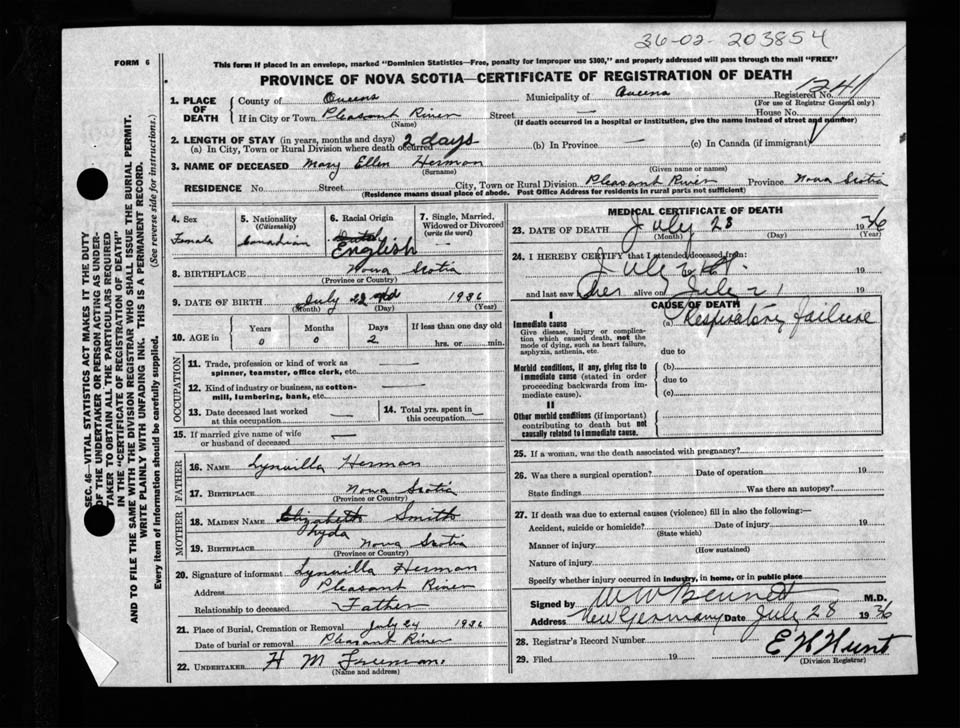 36-02-203854
FORM 6
This form if placed in an envelope, marked "Dominion Statistics—Free, penalty for improper use $300," and properly addressed will pass through the mail "FREE"
PROVINCE OF NOVA SCOTIA—CERTIFICATE OF REGISTRATION OF DEATH
SEC. 46—VITAL STATISTICS ACT MAKES IT THE DUTY
OF THE UNDERTAKER OR PERSON ACTING AS UNDER-
TAKER TO OBTAIN ALL THE PARTICULARS REQUIRED
IN THE "CERTIFICATE OF REGISTRATION OF DEATH"
AND TO FILE THE SAME WITH THE DIVISION REGISTRAR WHO SHALL ISSUE THE BURIAL PERMIT.
WRITE PLAINLY WITH UNFADING INK. THIS IS A PERMANENT RECORD.
Every item of information should be carefully supplied. (See reverse side for instructions.)
1. PLACE OF DEATH County of Queens Municipality of Queens Registered No. 1241
(For use of Registrar General only)
If in City or Town Pleasant River Street — House No.
(Name) (If death occurred in a hospital or institution, give the name instead of street and number)
2. LENGTH OF STAY (in years, months and days)
(a) In City, Town or Rural Division where death occurred 2 days (b) In Province — (c) In Canada (if immigrant)
3. NAME OF DECEASED Mary Ellen Herman
(Surname) (Given name or names)
RESIDENCE No. Street City, Town or Rural Division Pleasant River Province Nova Scotia
(Residence means usual place of abode. Post Office Address for residents in rural parts not sufficient)
4. Sex Female
5. Nationality (Citizenship) Canadian
6. Racial Origin Dutch English
7. Single, Married, Widowed or Divorced (write the word) —
8. BIRTHPLACE Nova Scotia
(Province or Country)
9. DATE OF BIRTH July 22nd 1936
(Month) (Day) (Year)
10. AGE in Years 0 Months 0 Days 2 If less than one day old hrs. or min.
OCCUPATION
11. Trade, profession or kind of work as spinner, teamster, office clerk, etc. —
12. Kind of industry or business, as cotton-mill, lumbering, bank, etc. —
13. Date deceased last worked at this occupation —
14. Total yrs. spent in this occupation —
15. If married give name of wife or husband of deceased —
FATHER
16. NAME Lynwilla Herman
17. BIRTHPLACE Nova Scotia
(Province or Country)
MOTHER
18. MAIDEN NAME Elizabeth Smith
Hyda
19. BIRTHPLACE Nova Scotia
(Province or Country)
20. Signature of informant Lynwilla Herman
Address Pleasant River
Relationship to deceased Father
21. Place of Burial, Cremation or Removal July 24 1936
Date of burial or removal Pleasant River
22. UNDERTAKER H M Freeman
(Name and address)
MEDICAL CERTIFICATE OF DEATH
23. DATE OF DEATH July 23 1936
(Month) (Day) (Year)
24. I HEREBY CERTIFY that I attended deceased from:
July 19
and last saw her alive on July 21 19
CAUSE OF DEATH
I
Immediate cause (a) Respiratory failure
Give disease, injury or complication which caused death, not the mode of dying, such as heart failure, asphyxia, asthenia, etc.
due to
Morbid conditions, if any, giving rise to immediate cause (stated in order proceeding backwards from immediate cause). (b)
due to
(c)
II
Other morbid conditions (if important) contributing to death but not causally related to immediate cause.
25. If a woman, was the death associated with pregnancy?
26. Was there a surgical operation? Date of operation 19
State findings Was there an autopsy?
27. If death was due to external causes (violence) fill in also the following:—
Accident, suicide or homicide? Date of injury 19
(State which)
Manner of injury
(How sustained)
Nature of injury
Specify whether injury occurred in industry, in home, or in public place
Signed by W W Bennett M.D.
Address New Germany Date July 28 1936
28. Registrar's Record Number
29. Filed 19 E H Hunt
(Division Registrar)